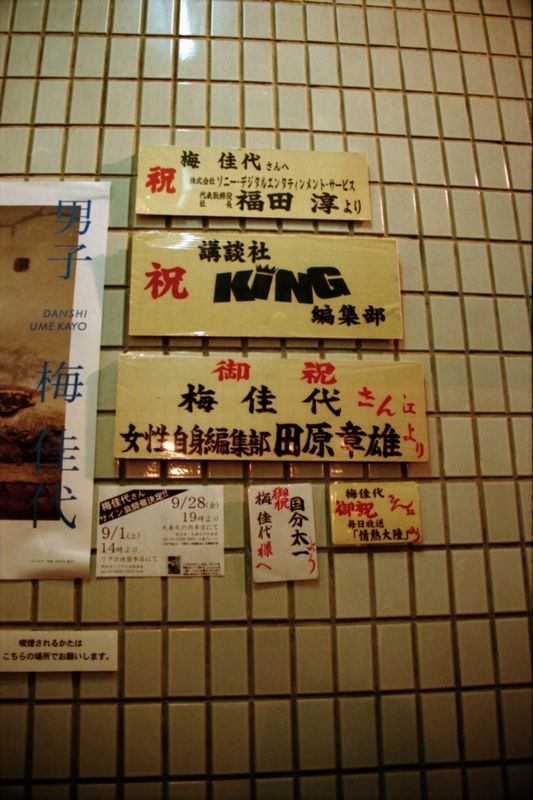 梅 佳代 さんへ
祝
株式会社 ソニー・デジタルエンタテインメント・サービス
代表取締役
社長
福田 淳 より
講談社
祝
KING
編集部
御 祝
梅 佳 代 さん江
女性自身編集部 田原章雄 より
男子
DANSHI
UME KAYO
梅 佳代
梅佳代さん
サイン会開催決定!!
9/28(金)
19時より
丸善丸の内本店にて
9/1(土)
14時より
リブロ池袋本店にて
御祝
国分太一より
梅佳代様へ
梅佳代さんに
御祝
毎日放送
「情熱大陸」より
喫煙されるかたは
こちらの場所でお願いします。